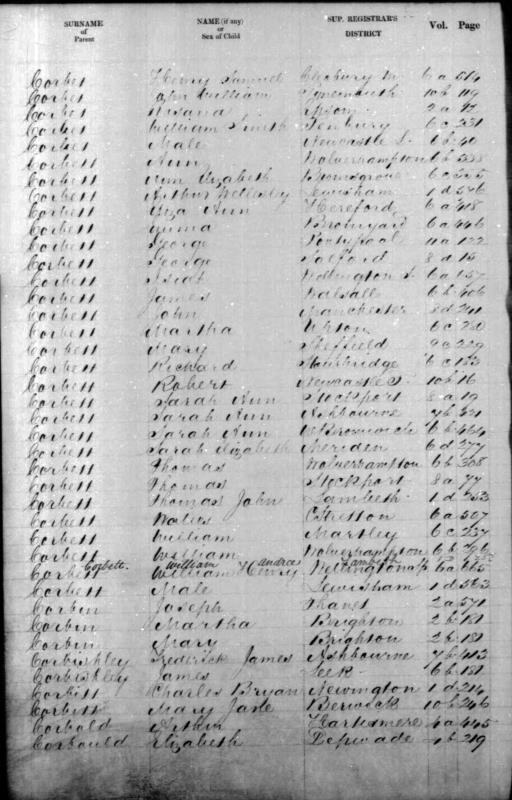 SURNAME of Parent NAME (if any) or Sex of Child SUP. REGISTRAR'S DISTRICT Vol. Page
Corbet Henry Samuel Cleobury M. 6a 514
Corbet John William Tynemouth 10b 119
Corbet Susana Epsom 2a
Corbet William Smith Tenbury 6c 231
Corbet Male Newcastle L. 6b 40
Corbett Ann Wolverhampton 6b
Corbett Ann Elizabeth Bromsgrove 6c
Corbett Arthur Wellesley Lewisham 1d 546
Corbett Eliza Ann Hereford 6a 418
Corbett Emma Bromyard 6a 446
Corbett George Pontypool 11a 122
Corbett George Salford 8d 14
Corbett Wellington S. 6a 157
Corbett James Walsall 6b 406
Corbett John Manchester 8d 241
Corbett Martha Upton 6c 280
Corbett Mary Sheffield 9c 229
Corbett Richard Stourbridge 6c 183
Corbett Robert Newcastle T. 10b 16
Corbett Sarah Ann Stockport 8a 19
Corbett Sarah Ann Ashbourne 7b 421
Corbett Sarah Ann W. Bromwich 6b 464
Corbett Sarah Elizabeth Meriden 6d 277
Corbett Thomas Wolverhampton 6b 308
Corbett Thomas Stockport 8a 77
Corbett Thomas John Lambeth 1d 253
Corbett Wales C. Stretton 6a 507
Corbett William Martley 6c 237
Corbett William Wolverhampton 6b 296
Corbett William Lambeth
Corbett William Henry Wellington 6a 665
Corbett Male Lewisham 1d 563
Corbin Joseph Thanet 2a 571
Corbin Martha Brighton 2b 181
Corbin Mary Brighton 2b 181
Corbishley Frederick James Ashbourne 7b 413
Corbishley James Leek 6b 181
Corbitt Charles Bryan Newington 1d 214
Corbitt Mary Jane Berwick 10b 246
Corbold Hartismere 4a 445
Corbould Elizabeth Depwade 4b 219